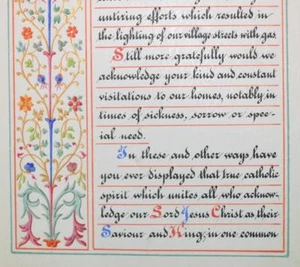 untiring efforts which resulted in
the lighting of our village streets with gas.
Still more gratefully would we
acknowledge your kind and constant
visitations to our homes, notably in
times of sickness, sorrow or spec-
ial need.
In these and other ways have
you ever displayed that true catholic
spirit which unites all, who acknow-
ledge our Lord Jesus Christ as their
Saviour and King, in one common